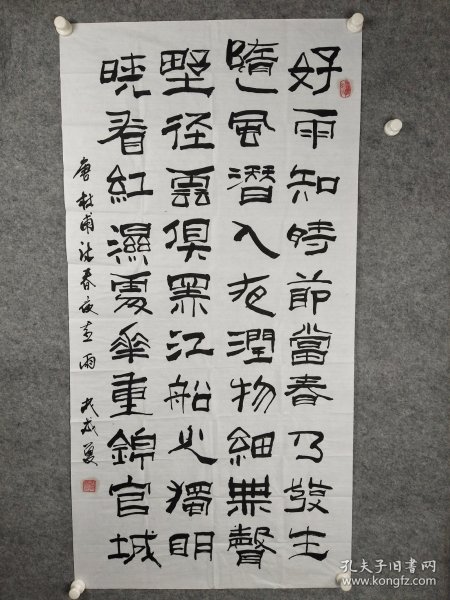 好雨知時節當春乃發生
隨風潛入夜潤物細無聲
野徑雲俱黑江船火獨明
曉看紅濕處華重錦官城
唐杜甫詩春夜喜雨
孔夫子旧书网
www.kongfz.com